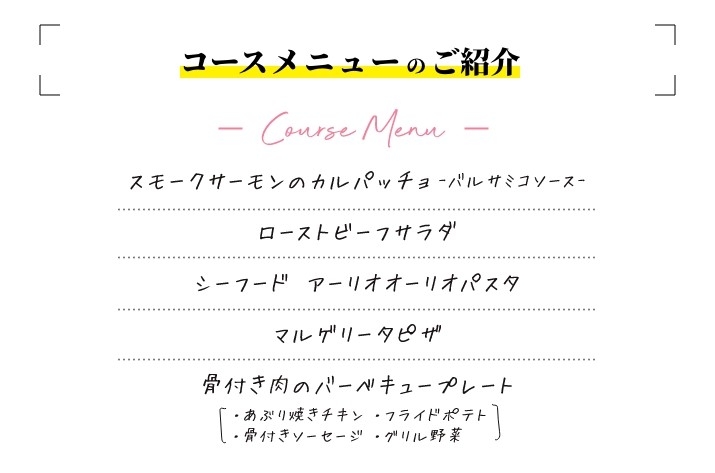 コースメニューのご紹介
Course Menu
スモークサーモンのカルパッチョ-バルサミコソース-
ローストビーフサラダ
シーフード　アーリオオーリオパスタ
マルゲリータピザ
骨付き肉のバーベキュープレート
・あぶり焼きチキン ・フライドポテト
・骨付きソーセージ ・グリル野菜